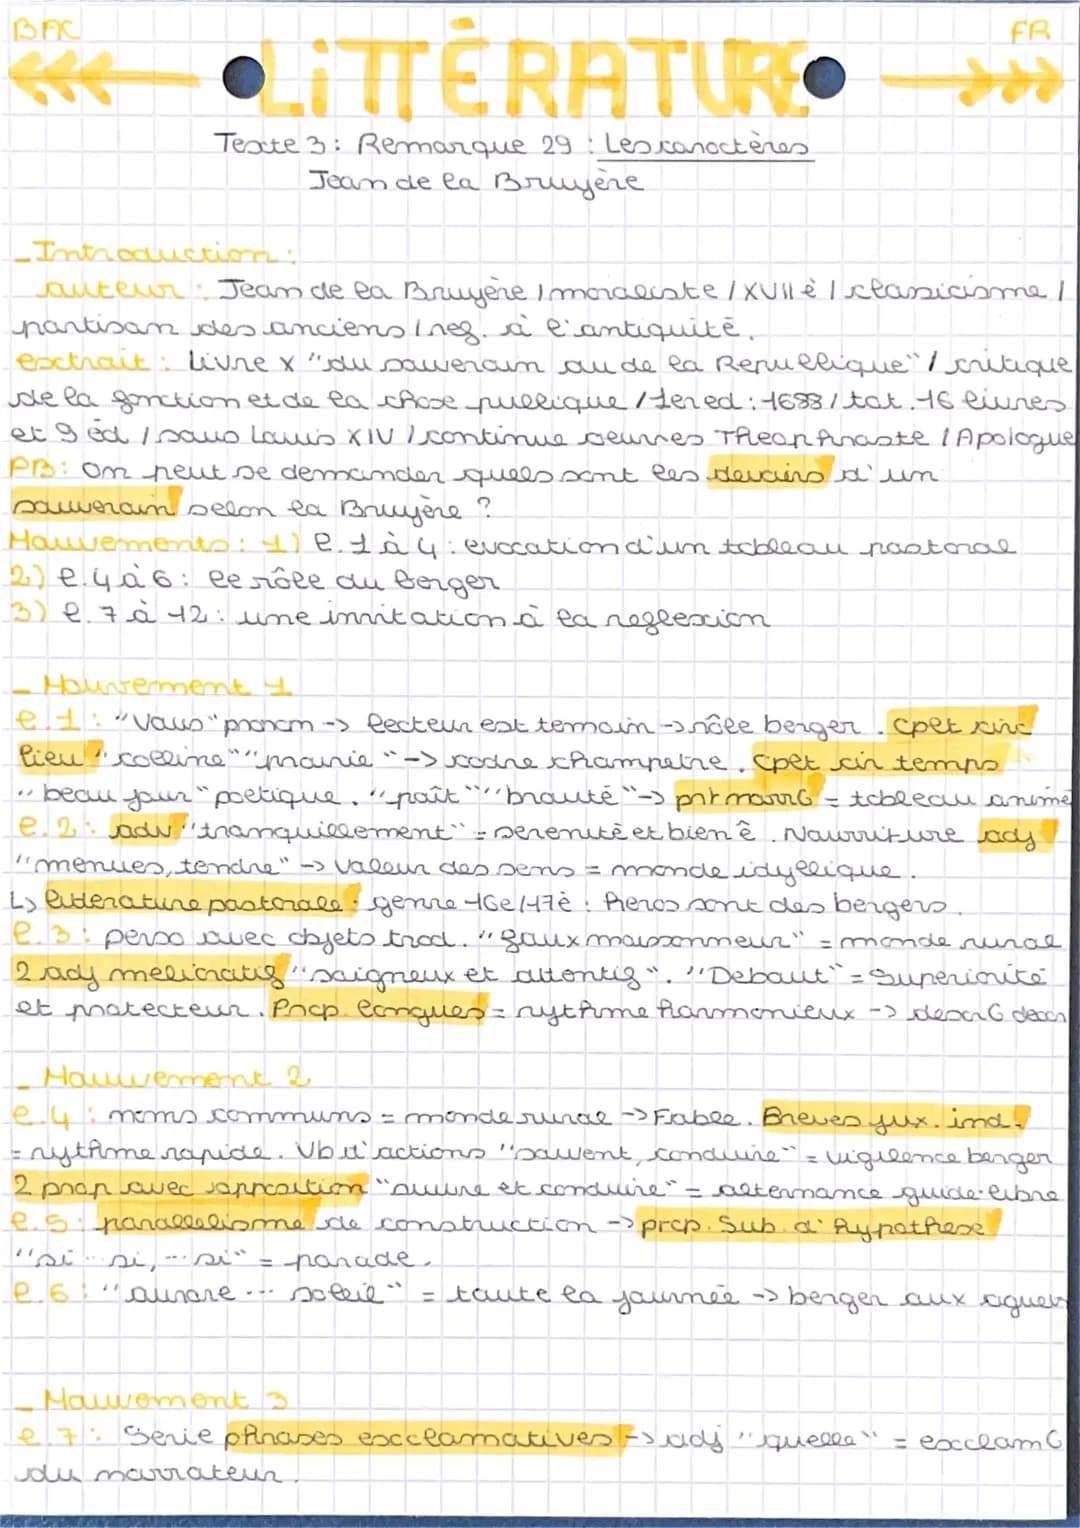 BAC FR
LiTTÉRATURE
Texte 3 : Remarque 29 : Les caractères
Jean de la Bruyère
- Introduction :
auteur : Jean de la Bruyère / moraliste / XVII è / classicisme /
partisan des anciens / ref. à l'antiquité.
extrait : Livre X "du souverain ou de la Republique" / critique
de la fonction et de la chose publique / 1er ed : 1688 / tot. 16 livres
et 9 éd / sous Louis XIV / continue oeuvres / Apologue
PB : On peut se demander quels sont les devoirs d'un
souverain selon la Bruyère ?
Mouvements : 1) l. 1 à 4 : evocation d'un tableau pastoral
2) l. 4 à 6 : le rôle du berger
3) l. 7 à 12 : une invitation à la reflexion
- Mouvement 1
l. 1 : "Vous" pronom -> lecteur est temoin -> rôle berger . Cplt circ
lieu "colline" "prairie" -> cadre champetre . Cplt cir temps
"beau jour" poetique . "paît" "broute" -> prt narra° = tableau animé
l. 2 : adv "tranquillement" = serenité et bien ê . Nourriture adj
"menues, tendre" -> valeur des sens = monde idyllique .
L> literature pastorale : genre 16e/17è : heros sont des bergers .
l. 3 : perso avec objets trad. "faux maissonneur" = monde rural
2 adj melioratifs "soigneux et attentif" . "Debout" = Superiorité
et protecteur . Prop longues = rythme harmonieux ->
- Mouvement 2
l. 4 : noms communs = monde rural -> Fable . Breves jux. ind.
= rythme rapide . Vb d'actions "suivent, conduire" = vigilence berger
2 prop avec opposition "suivre et conduire" = alternance guide-libre
l. 5 : parallelisme de construction -> prop. Sub. d'hypothese
"si ... si, ... si" = parade .
l. 6 : "aurore ... soleil" = toute la journée -> berger aux aguets
- Mouvement 3
l. 7 : Serie phrases exclamatives -> adj "quelle" = exclam°
du narrateur .